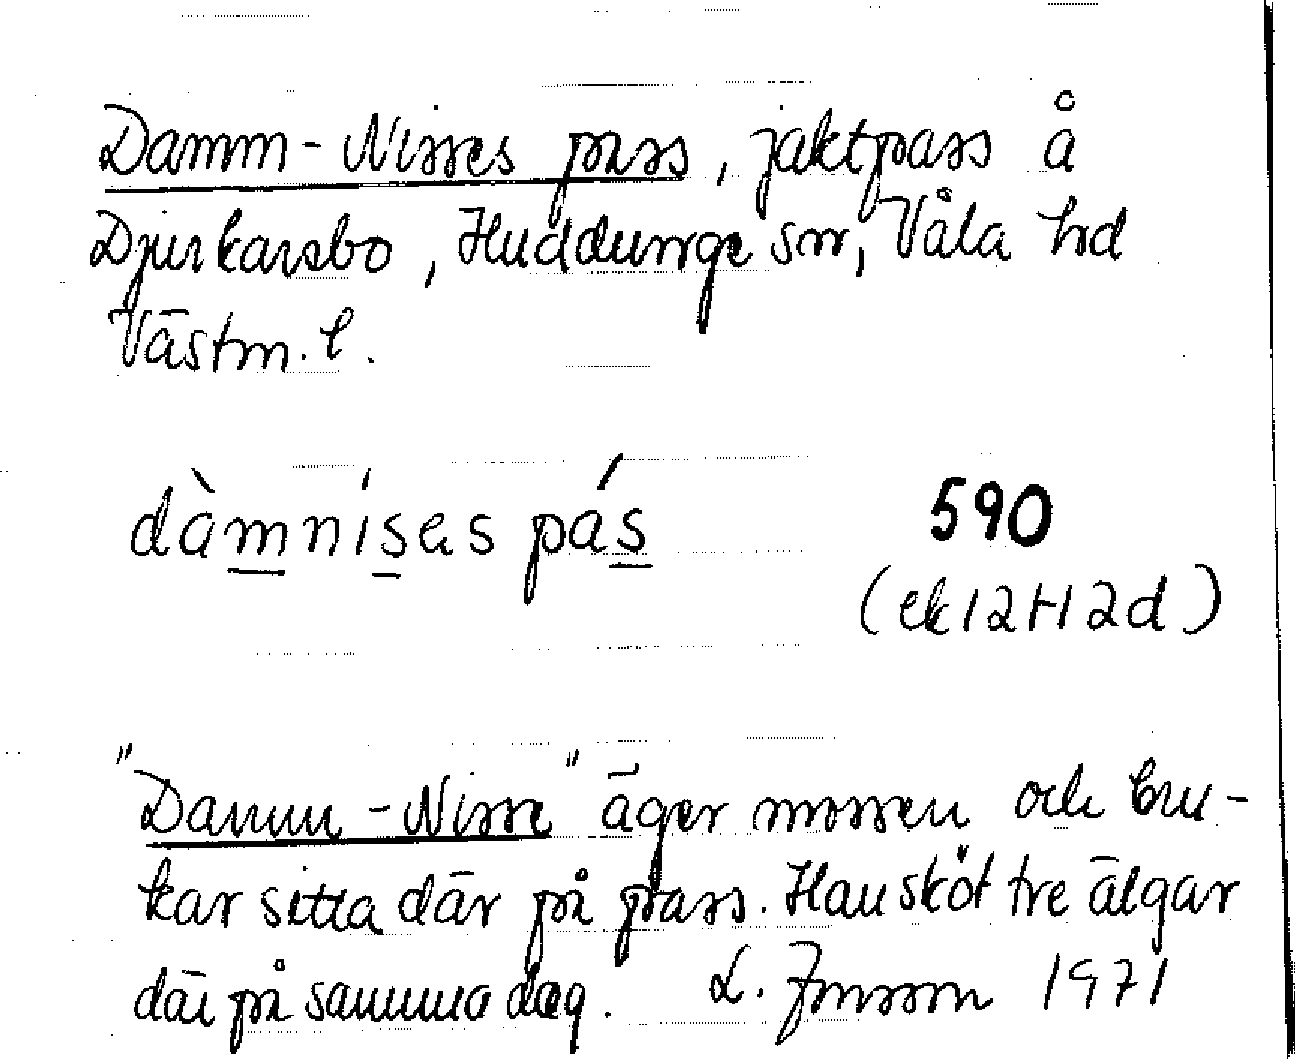 Damm-Nisses pass, jaktpass å
Djurkarsbo, Huddunge sn, Våla hd
Västm. l.
dàmnísəs pás
590
(ek 12H 2d)
"Damm-Nisse" äger mossen och bru-
kar sitta där på pass. Han sköt tre älgar
där på samma dag. L. Jonsson 1971